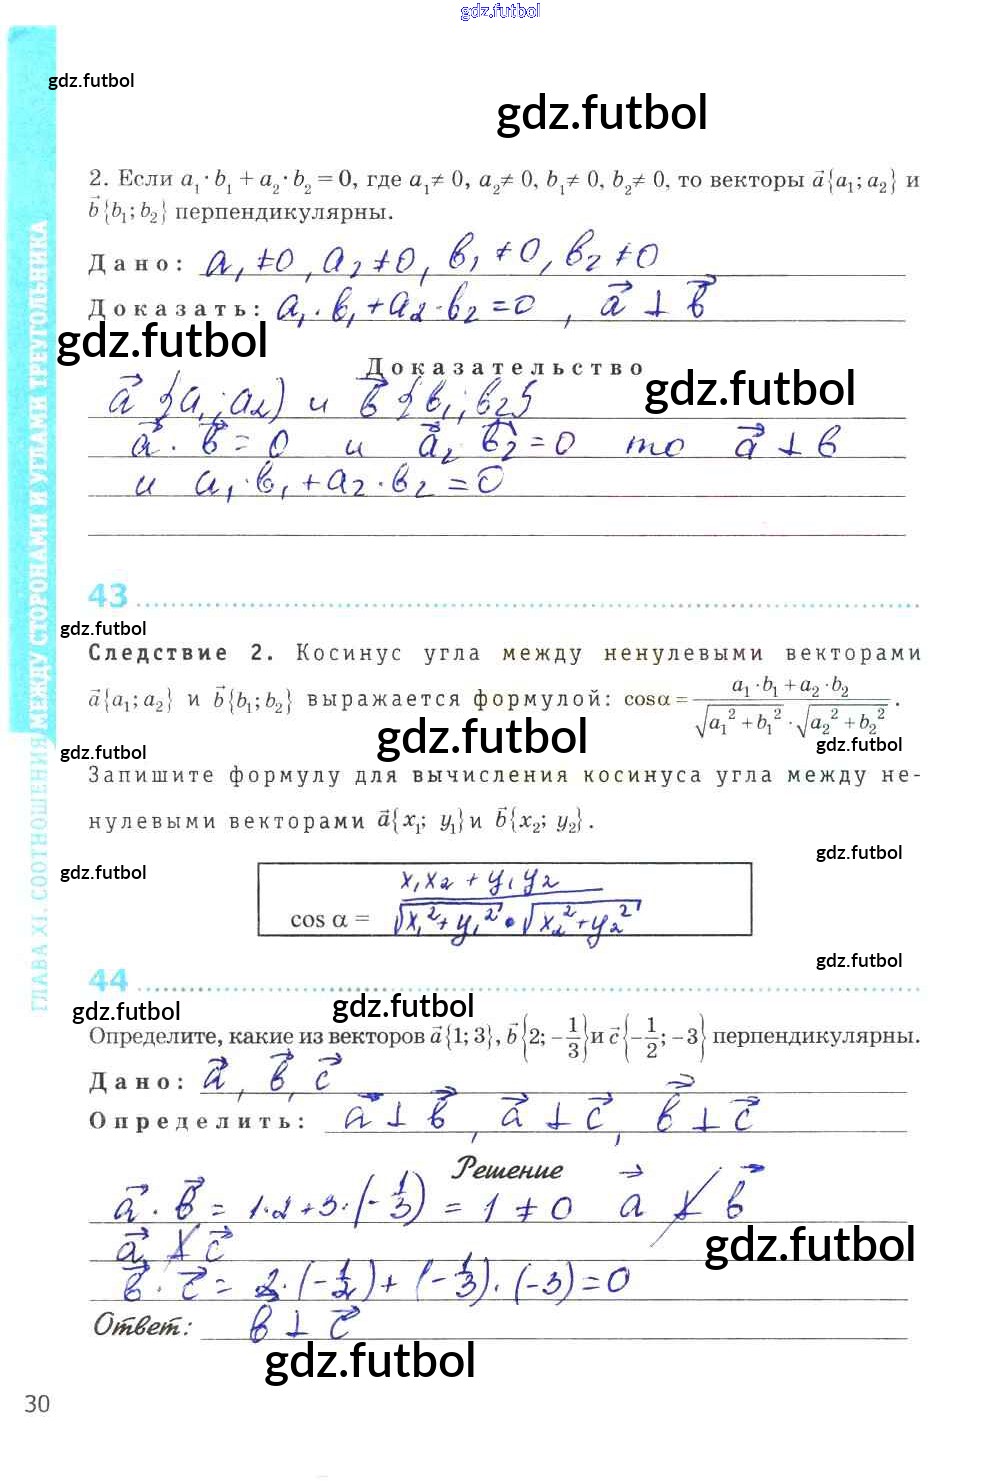 gdz.futbol
gdz.futbol
gdz.futbol
2. Если a₁·b₁ + a₂·b₂ = 0, где a₁ ≠ 0, a₂ ≠ 0, b₁ ≠ 0, b₂ ≠ 0, то векторы a⃗{a₁; a₂} и
b⃗{b₁; b₂} перпендикулярны.
Дано: a₁ ≠0, a₂ ≠0, b₁ ≠0, b₂ ≠0
Доказать: a₁·b₁+a₂·b₂=0, a⃗ ⊥ b⃗
gdz.futbol
Доказательство
gdz.futbol
a⃗ {a₁; a₂) и b⃗ {b₁; b₂}
a⃗ · b⃗ = 0 и a⃗₂ b⃗₂ = 0 то a⃗ ⊥ b
и a₁·b₁+a₂·b₂=0
43
gdz.futbol
Следствие 2. Косинус угла между ненулевыми векторами
a⃗{a₁; a₂} и b⃗{b₁; b₂} выражается формулой: cosα = (a₁·b₁ + a₂·b₂)/(√(a₁² + b₁²)·√(a₂² + b₂²)).
gdz.futbol
gdz.futbol
gdz.futbol
Запишите формулу для вычисления косинуса угла между не-
нулевыми векторами a⃗{x₁; y₁} и b⃗{x₂; y₂}.
gdz.futbol
gdz.futbol
cos α = (x₁x₂ + y₁y₂)/(√(x₁²+y₁²)·√(x₂²+y₂²))
gdz.futbol
44
gdz.futbol
gdz.futbol
Определите, какие из векторов a⃗{1; 3}, b⃗{2; −1/3} и c⃗{−1/2; −3} перпендикулярны.
Дано: a⃗, b⃗, c⃗
Определить: a⃗ ⊥ b⃗, a⃗ ⊥ c⃗, b⃗ ⊥ c⃗
Решение
a⃗ · b⃗ = 1·2+3·(−1/3) = 1 ≠ 0 a⃗ ⊥̸ b⃗
a⃗ ⊥̸ c⃗
gdz.futbol
b⃗ · c⃗ = 2·(−1/2)+(−1/3)·(−3)=0
Ответ: b ⊥ c⃗
gdz.futbol
30
ГЛАВА XI. СООТНОШЕНИЯ МЕЖДУ СТОРОНАМИ И УГЛАМИ ТРЕУГОЛЬНИКА